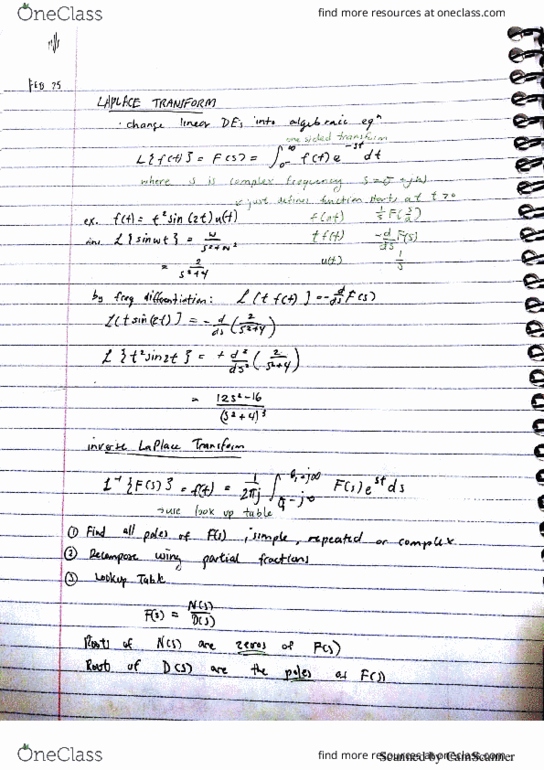 OneClass
find more resources at oneclass.com
FEB 25
LAPLACE TRANSFORM
· change linear DEs into algebraic eqⁿ
one sided transform
L{f(t)} = F(s) = ∫₀-^∞ f(t) e^-st dt
where s is complex frequency s = σ + jω
just defines function starts at t>0
ex. f(t) = t² sin(2t) u(t) f(at) 1/a F(s/a)
L{sin wt} = w/(s²+w²) t f(t) -d/ds F(s)
= 2/(s²+4) u(t) 1/s
by freq differentiation: L[t f(t)] = -d/ds F(s)
L[t sin(2t)] = -d/ds (2/(s²+4))
L{t² sin2t} = + d²/ds² (2/(s²+4))
= (12s²-16)/(s²+4)³
inverse LaPlace Transform
L⁻¹{F(s)} = f(t) = 1/2πj ∫ F(s) e^st ds
→use look up table
① Find all poles of F(s), simple, repeated or complex
② Decompose using partial fractions
③ Lookup Table
F(s) = N(s)/D(s)
Roots of N(s) are zeros of F(s)
Roots of D(s) are the poles of F(s)
OneClass
find more resources at oneclass.com
Scanned by CamScanner